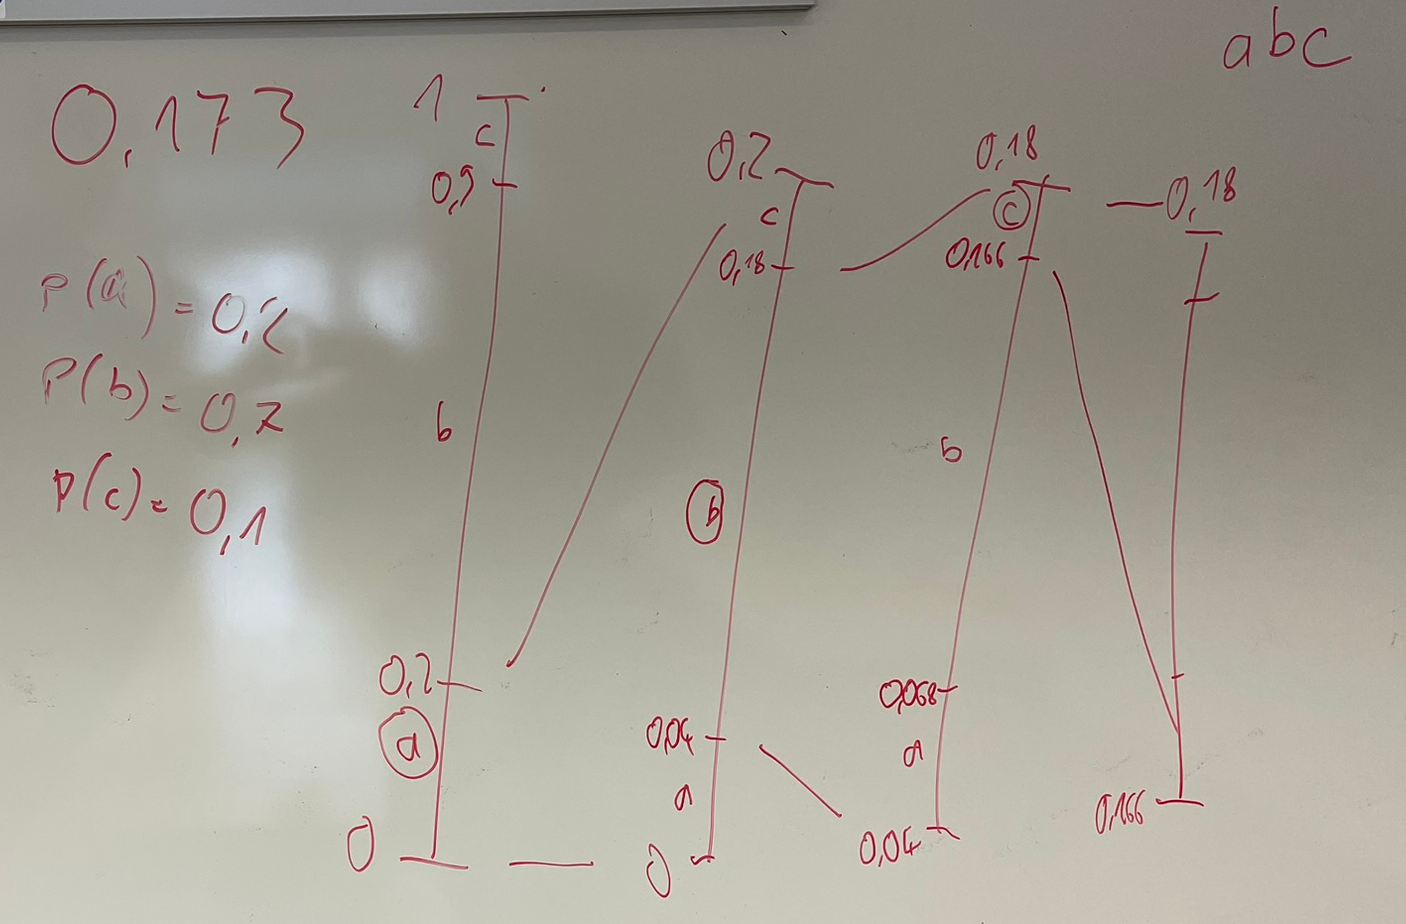 abc
0,173
P(a) = 0,2
P(b) = 0,7
P(c) = 0,1
1
c
0,9
b
0,2
a
0
0,2
c
0,18
b
0,04
a
0
0,18
c
0,166
b
0,068
a
0,04
0,18
0,166